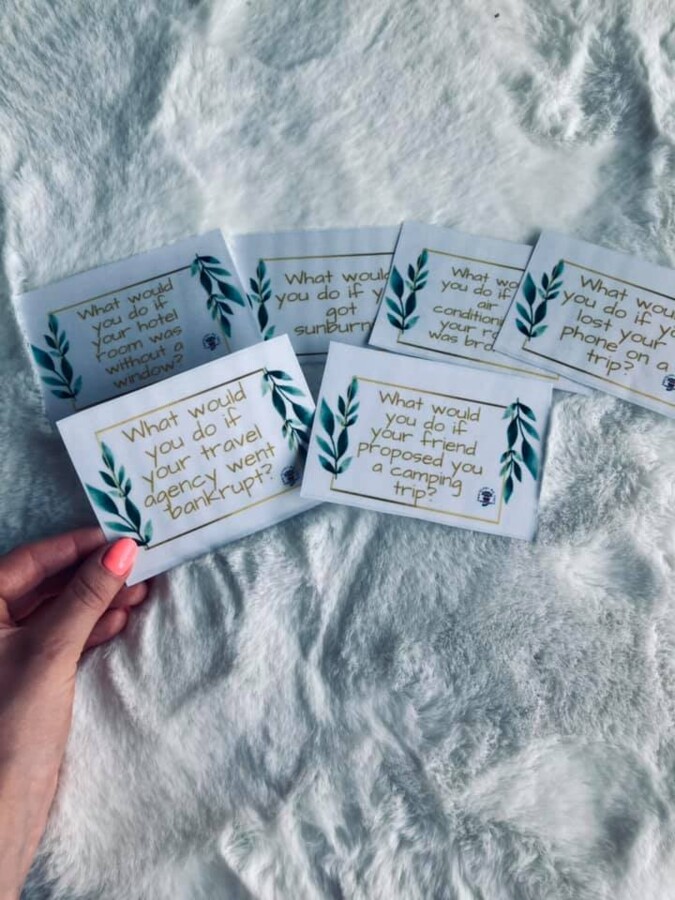 What would
you do if
your hotel
room was
without a
window?
What would
you do if y
got
sunburn
What wo
you do if
air
condition
your r
was bro
What wou
you do if yo
lost your
phone on a
trip?
What would
you do if
your travel
agency went
bankrupt?
What would
you do if
your friend
proposed you
a camping
trip?